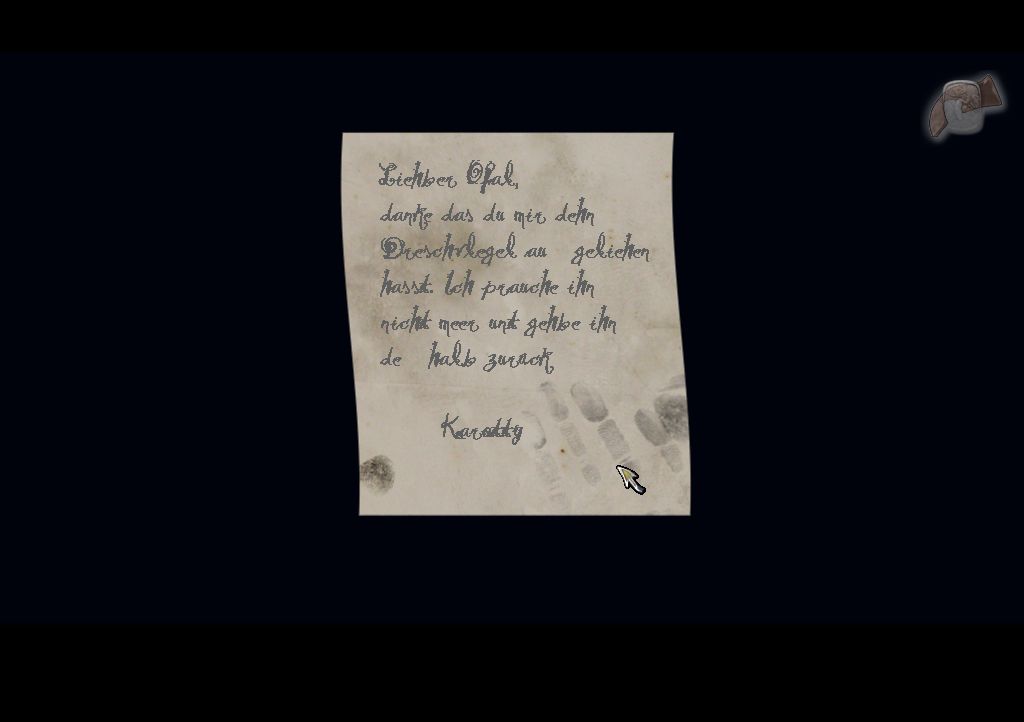 Liehber Opal,
danke das du mir dehn
Dreschvlegel au geliehen
hasst. Ich prauche ihn
nicht meer unt gehbe ihn
de halb zuruck
Karotty